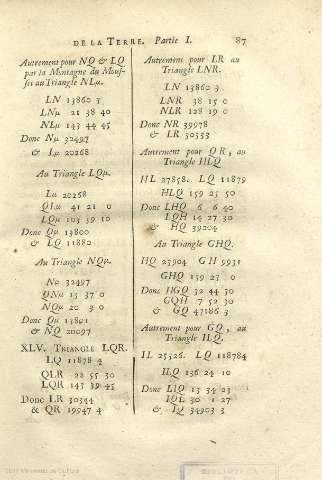 DE LA TERRE. Partie I. 87
Autrement pour NQ & LQ
par la Montagne du Mous-
su au Triangle NLµ.
LN 13860 3
LNµ 21 38 40
LNµ 143 44 45
Donc Nµ 32497
& Lµ 20268
Au Triangle LQµ.
Lµ 20268
QLµ 41 21 0
LQµ 103 39 10
Donc Qµ 13800
& LQ 11880
Au Triangle NQµ.
Nµ 32497
QNµ 15 37 0
NQµ 20 3 0
Donc Qµ 13801
& NQ 20097
XLV. TRIANGLE LQR.
LQ 11878
QLR 22 55 30
LQR 143 39 45
Donc LR 30344
& QR 19947 4
Autrement pour LR au
Triangle LNR.
LN 13860 3
LNR 38 15 0
NLR 128 19 0
Donc NR 39978
& LR 30333
Autrement pour QR, au
Triangle HLQ.
HL 27858. LQ 11879
HLQ 159 25 50
Donc LHQ 6 6 40
LQH 14 27 30
& HQ 39204
Au Triangle GHQ.
HQ 23904 GH 9931
GHQ 139 23 0
Donc HGQ 32 44 30
GQH 7 52 30
& GQ 47186 3
Autrement pour GQ, au
Triangle ILQ.
IL 25326. LQ 118784
ILQ 136 24 10
Donc LIQ 13 34 23
IQL 30 1 27
& IQ 34903 3